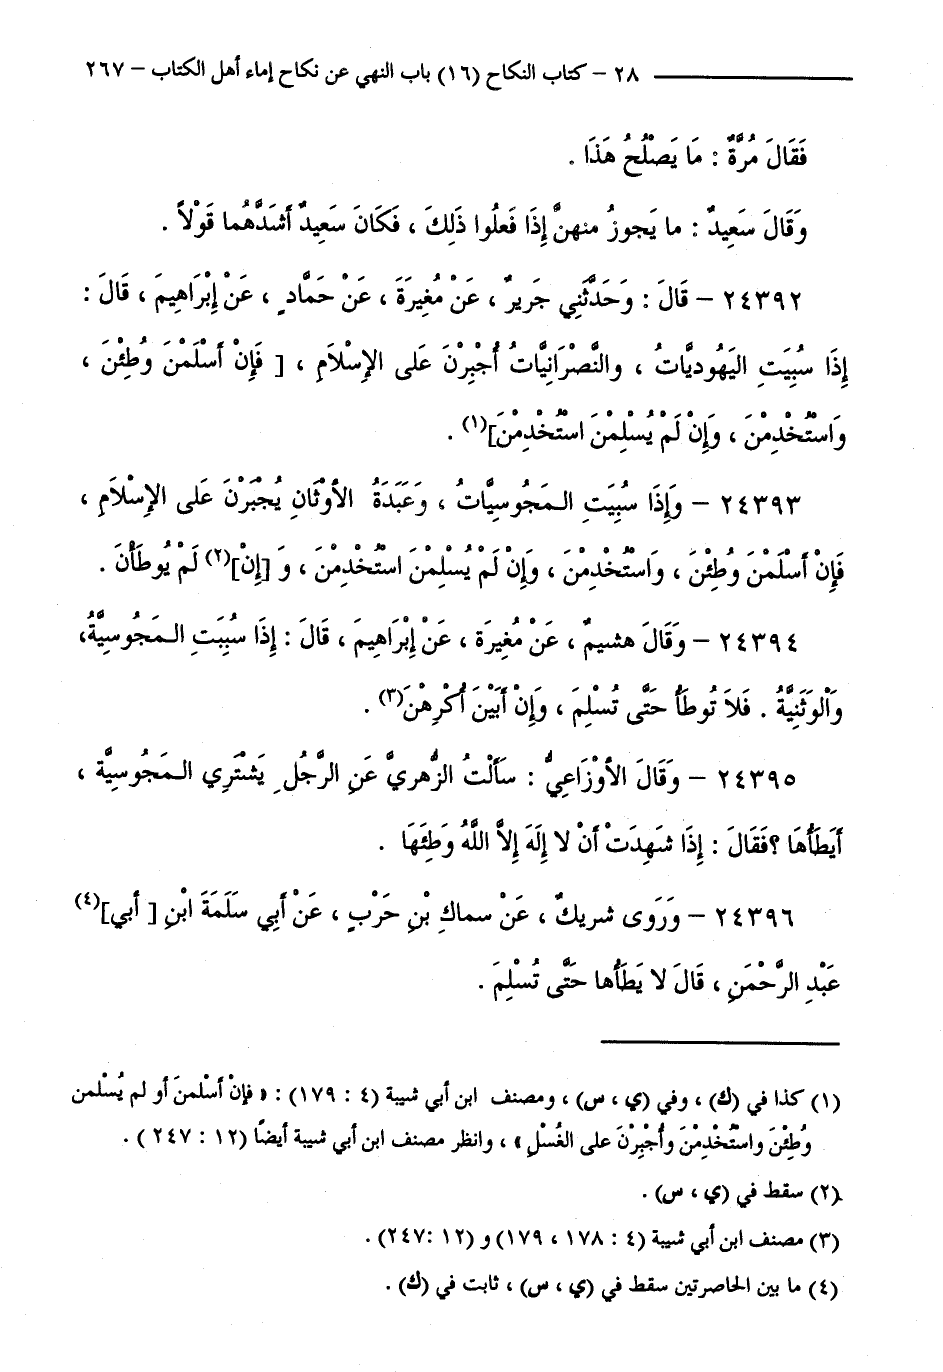 ٢٨ – كتاب النكاح (١٦) باب النهي عن نكاح إماء أهل الكتاب – ٢٦٧
فَقَالَ مُرَّةُ : مَا يَصْلُحُ هَذَا .
وَقَالَ سَعِيدٌ : ما يَجوزُ منهنَّ إِذَا فَعلُوا ذَلِكَ ، فَكَانَ سَعِيدٌ أَشَدَّهُما قَوْلاً .
٢٤٣٩٢ – قَالَ : وَحَدَّثَنِي جَريرٌ ، عَنْ مُغِيرَةَ ، عَنْ حَمَّادٍ ، عَنْ إِبْرَاهِيمَ ، قَالَ :
إِذَا سُبِيَتِ اليَهُوديَّاتُ ، والنَّصْرَانِيَّاتُ أُجْبِرْنَ عَلى الإِسْلَامِ ، [ فَإِنْ أَسْلَمْنَ وَطُئْنَ ،
وَاسْتُخْدِمْنَ ، وَإِنْ لَمْ يُسْلِمْنَ اسْتُخْدِمْنَ](١) .
٢٤٣٩٣ – وَإِذَا سُبِيَتِ المَجُوسِيَّاتُ ، وَعَبَدَةُ الأَوْثَانِ يُجْبَرْنَ عَلى الإِسْلَامِ ،
فَإِنْ أَسْلَمْنَ وُطِئْنَ ، وَاسْتُخْدِمْنَ ، وَإِنْ لَمْ يُسْلِمْنَ اسْتُخْدِمْنَ ، وَ [إِنْ](٢) لَمْ يُوطَأْنَ .
٢٤٣٩٤ – وَقَالَ هشيمٌ ، عَنْ مُغِيرَة ، عَنْ إِبْرَاهِيمَ ، قَالَ : إِذَا سُبِيَتِ المَجُوسِيَّةُ،
وَاْلوَثَنِيَّةُ . فَلاَ تُوطَأُ حَتَّى تُسْلِمَ ، وَإِنْ أَبَيْنَ أُكْرِهْنَ(٣) .
٢٤٣٩٥ – وَقَالَ الأَوْزَاعِيُّ : سَأَلْتُ الزُّهريَّ عَنِ الرَّجُلِ يَشْتَرِي المَجُوسِيَّة ،
أَيَطَأُهَا ؟فَقَالَ : إِذَا شَهِدَتْ أَنْ لا إِلَهَ إِلاَّ اللَّهُ وَطِئَهَا .
٢٤٣٩٦ – وَرَوَى شريكٌ ، عَنْ سماكِ بْنِ حَرْبٍ ، عَنْ أَبِي سَلَمَةَ ابْنِ [ أبي](٤)
عَبْدِ الرَّحْمَنِ ، قَالَ لا يَطَأُها حَتَّى تُسْلِمَ .
(١) كذا في (ك) ، وفي (ي ، س) ، ومصنف ابن أبي شيبة (٤ : ١٧٩) : « فإنْ أسْلمنَ أو لم يُسْلمن
وُطِئْنَ واسْتُخْدِمْنَ وأُجْبِرْنَ على الغُسْلِ » ، وانظر مصنف ابن أبي شيبة أيضًا (١٢ : ٢٤٧ ) .
(٢) سقط في (ي ، س) .
(٣) مصنف ابن أبي شيبة (٤ : ١٧٨ ، ١٧٩) و (١٢ :٢٤٧) .
(٤) ما بين الحاصرتين سقط في (ي ، س) ، ثابت في (ك) .